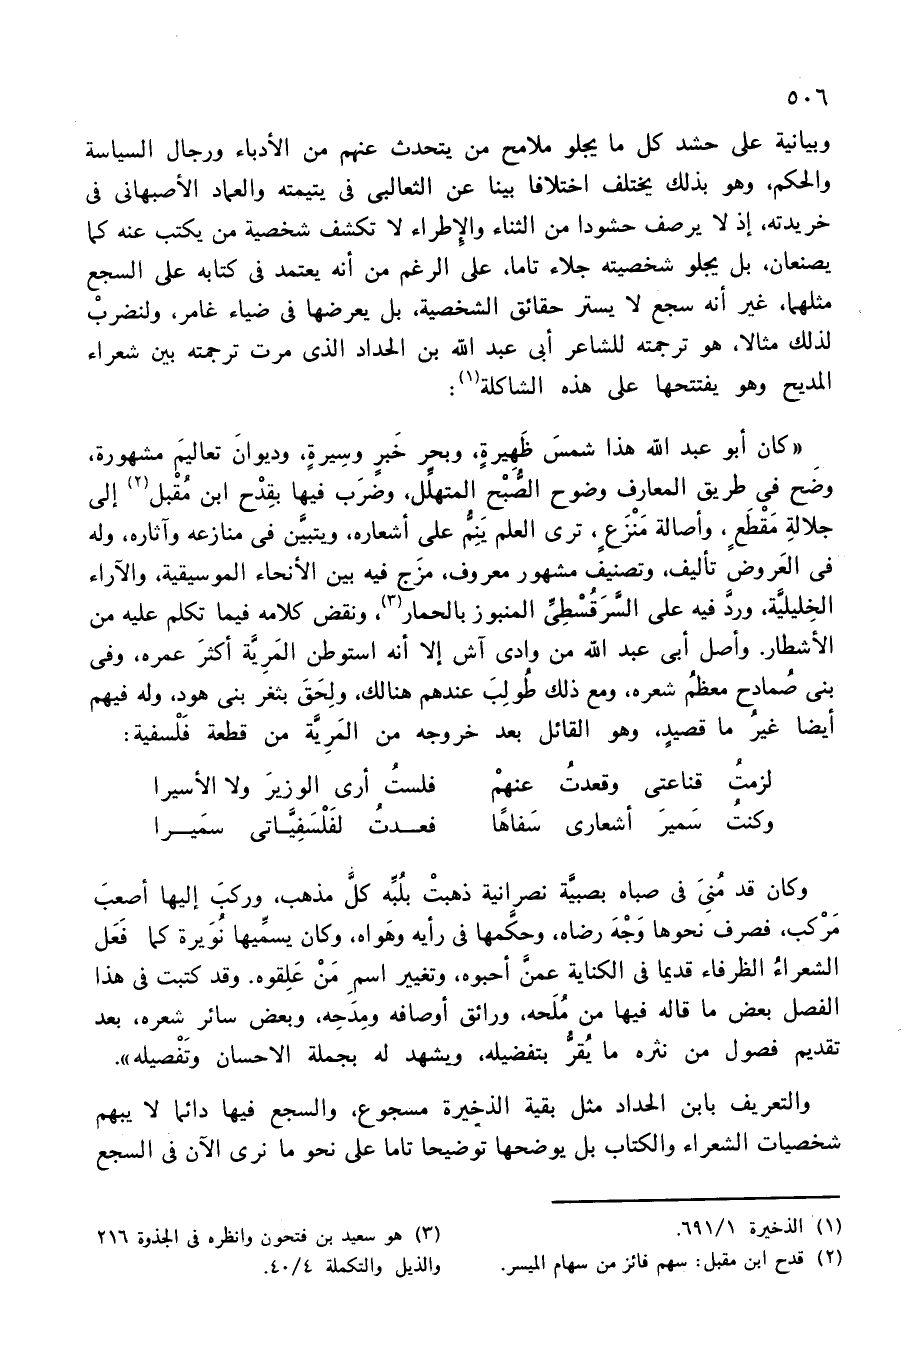 ٥٠٦
وبيانية على حشد كل ما يجلو ملامح من يتحدث عنهم من الأدباء ورجال السياسة
والحكم، وهو بذلك يختلف اختلافا بينا عن الثعالبى فى يتيمته والعماد الأصبهانى فى
خريدته، إذ لا يرصف حشودا من الثناء والإطراء لا تكشف شخصية من يكتب عنه كما
يصنعان، بل يجلو شخصيته جلاء تاما، على الرغم من أنه يعتمد فى كتابه على السجع
مثلهما، غير أنه سجع لا يستر حقائق الشخصية، بل يعرضها فى ضياء غامر، ولنضربْ
لذلك مثالا، هو ترجمته للشاعر أبى عبد الله بن الحداد الذى مرت ترجمته بين شعراء
المديح وهو يفتتحها على هذه الشاكلة(١):
«كان أبو عبد الله هذا شمسَ ظَهِيرةٍ، وبحرِ خَبرٍ وسِيرةٍ، وديوانَ تعاليمَ مشهورة،
وضَح فى طريق المعارف وضوح الصُّبْح المتهلِّل، وضرَب فيها بقِدْح ابن مُقْبل(٢) إلى
جلالةِ مَقْطَعٍ، وأصالة مَنْزَعٍ، ترى العلم يَنِمُّ على أشعاره، ويتبيَّن فى منازعه وآثاره، وله
فى العَروض تأليف، وتصنيف مشهور معروف، مزَج فيه بين الأنحاء الموسيقية، والآراء
الخليليَّة، وردَّ فيه على السَّرَقُسْطِىِّ المنبوز بالحمار(٣)، ونقض كلامه فيما تكلم عليه من
الأشطار. وأصل أبى عبد الله من وادى آش إلا أنه استوطن المَريَّة أكثرَ عمره، وفى
بنى صُمادح معظمُ شعره، ومع ذلك طُولِبَ عندهم هنالك، ولِحَقَ بثغر بنى هود، وله فيهم
أيضا غيرُ ما قصيدٍ، وهو القائل بعد خروجه من المَرِيَّة من قطعة فَلْسفية:
لزمتُ قناعتى وقعدتُ عنهمْ فلستُ أرى الوزيرَ ولا الأسيرا
وكنتُ سَميرَ أشعارى سَفاهًا فعـدتُ لفَلْسَفِيَّاتى سمَيـرا
وكان قد مُنِىَ فى صباه بصبيَّة نصرانية ذهبتْ بلُبِّه كلَّ مذهب، وركبَ إليها أصعبَ
مَرْكب، فصرف نحوها وَجْهَ رضاه، وحكَّمها فى رأيه وهَواه، وكان يسمِّيها نُوَيرة كما فَعَل
الشعراءُ الظرفاء قديما فى الكناية عمنَّ أحبوه، وتغيير اسمِ مَنْ عَلِقوه. وقد كتبت فى هذا
الفصل بعض ما قاله فيها من مُلَحه، ورائق أوصافه ومِدَحِه، وبعض سائر شعره، بعد
تقديم فصول من نثره ما يُقرُّ بتفضيله، ويشهد له بجملة الاحسان وتَفْصيله».
والتعريف بابن الحداد مثل بقية الذخيرة مسجوع، والسجع فيها دائما لا يبهم
شخصيات الشعراء والكتاب بل يوضحها توضيحا تاما على نحو ما نرى الآن فى السجع
(١) الذخيرة ٦٩١/١.
(٢) قدح ابن مقبل: سهم فائز من سهام الميسر.
(٣) هو سعيد بن فتحون وانظره فى الجذوة ٢١٦
والذيل والتكملة ٤٠/٤.